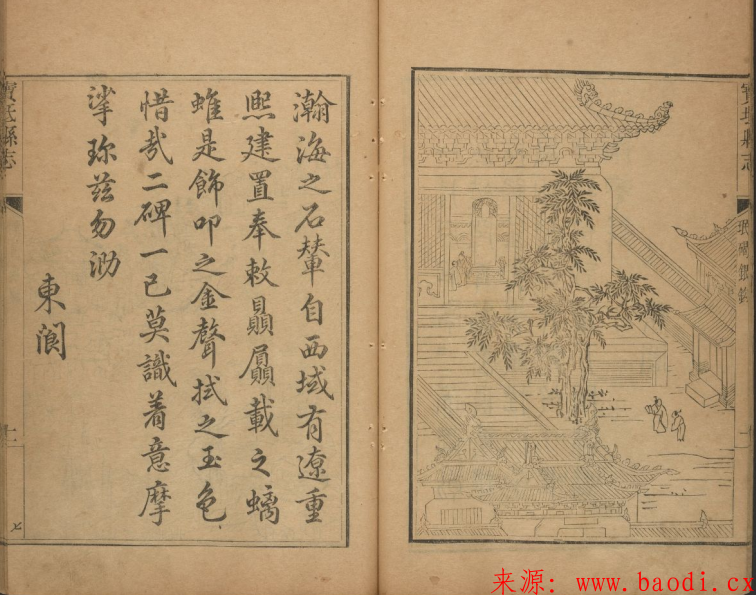 寶坻縣志
瀚海之石輦自西域有遼重
熙建置奉敕贔屭載之螭
蜼是飾叩之金聲拭之玉色
惜哉二碑一已莫識着意摩
挲珍茲勿泐
東閬
寶坻縣志
七
来源: www.baodi.cx